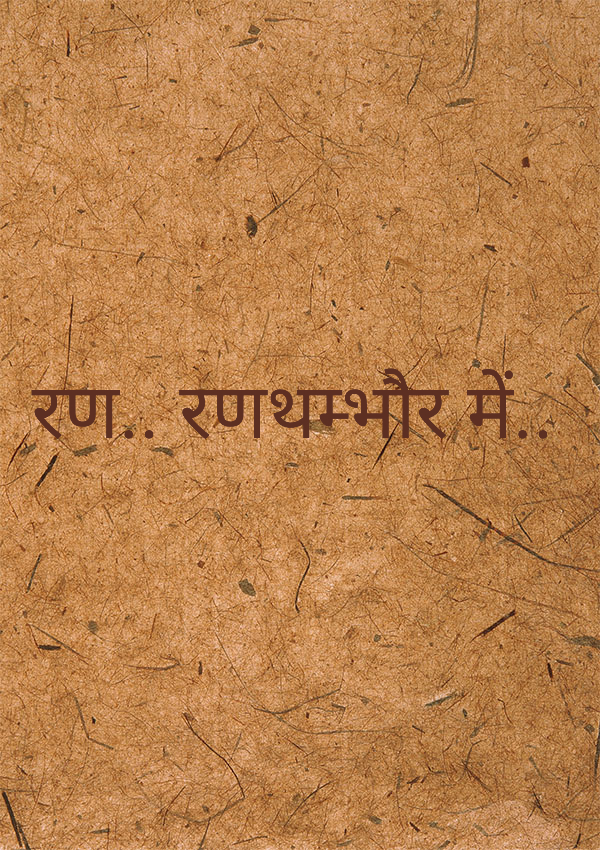 रण.. रणथम्भौर में..